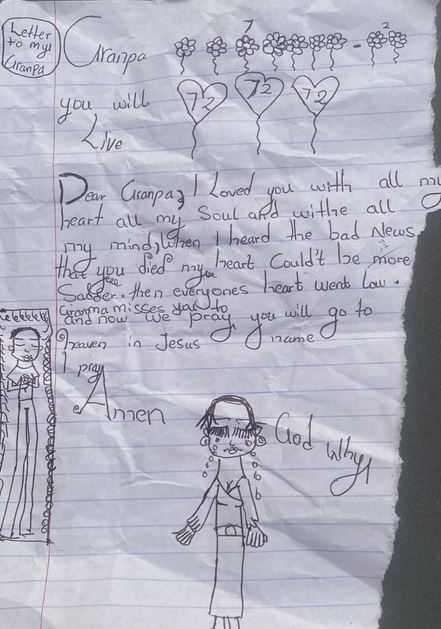 Letter
to my
Granpa
Granpa
7 2
72 72 72
you will
Live
Dear Granpa, I Loved you with all my
heart all my Soul and withe all
my mind, when I heard the bad News
that you died my heart Could't be more
Sadder. then everyones heart went low.
Granma misses you to
and now we pray you will go to
heaven in Jesus name
I pray
Amen
God Why